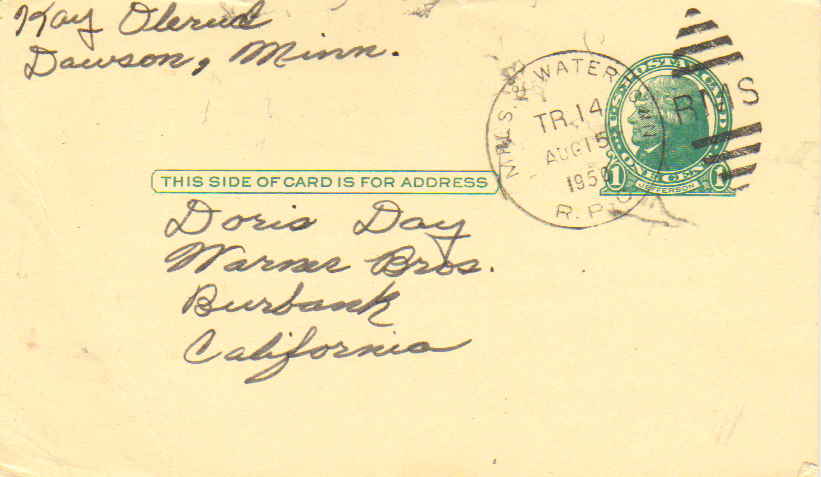 Kay Olerud
Dawson, Minn.
MPLS. & WATERTOWN
TR. 14
AUG 15
1950
R.P.O.
RMS
U.S. POSTAL CARD
ONE CENT
1 JEFFERSON 1
THIS SIDE OF CARD IS FOR ADDRESS
Doris Day
Warner Bros.
Burbank
California